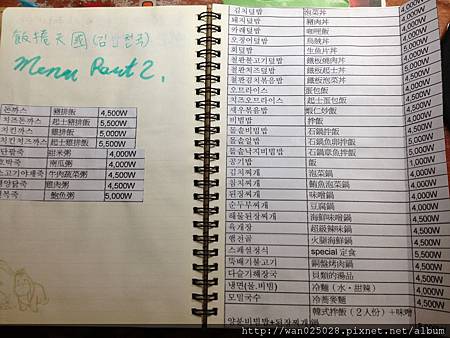 飯捲天國(김밥천국)
Menu Part 2.
돈까스 豬排飯 4,500W
치즈돈까스 起士豬排飯 5,500W
치킨까스 雞排飯 5,000W
치킨치즈까스 起士雞排飯 5,500W
단팥죽 甜米粥 4,000W
호박죽 南瓜粥 4,000W
소고기야채죽 牛肉蔬菜粥 4,500W
영양닭죽 雞肉粥 4,500W
전복죽 鮑魚粥 5,000W
김치덮밥 泡菜丼 4,000W
돼지덮밥 豬肉丼
카레덮밥 咖哩飯
오징어덮밥 烏賊丼
회덮밥 生魚片丼
철판불고기덮밥 鐵板燒肉丼
철판치즈덮밥 鐵板起士丼
철판김치볶음밥 鐵板泡菜丼
오므라이스 蛋包飯
치즈오므라이스 起士蛋包飯
새우볶음밥 蝦仁炒飯
비빔밥 拌飯
돌솥비빔밥 石鍋拌飯
돌솥알밥 石鍋魚卵拌飯
돌솥낙지비빔밥 石鍋章魚拌飯
공기밥 飯
김치찌개 泡菜鍋
참치찌개 鮪魚泡菜鍋
된장찌개 味噌鍋
순두부찌개 豆腐鍋
해물된장찌개 海鮮味噌鍋
육개장 超級辣味鍋
햄전골 火腿海鮮鍋
스페셜정식 special 定食
뚝배기불고기 銅盤烤肉鍋
다슬기해장국 貝類的湯品
냉면(물.비빔) 冷麵(水,甜辣)
모밀국수 冷蕎麥麵
양푼비빔밥+된장찌개 韓式拌飯(2人份)+味噌鍋
http://wan025028.pixnet.net/album